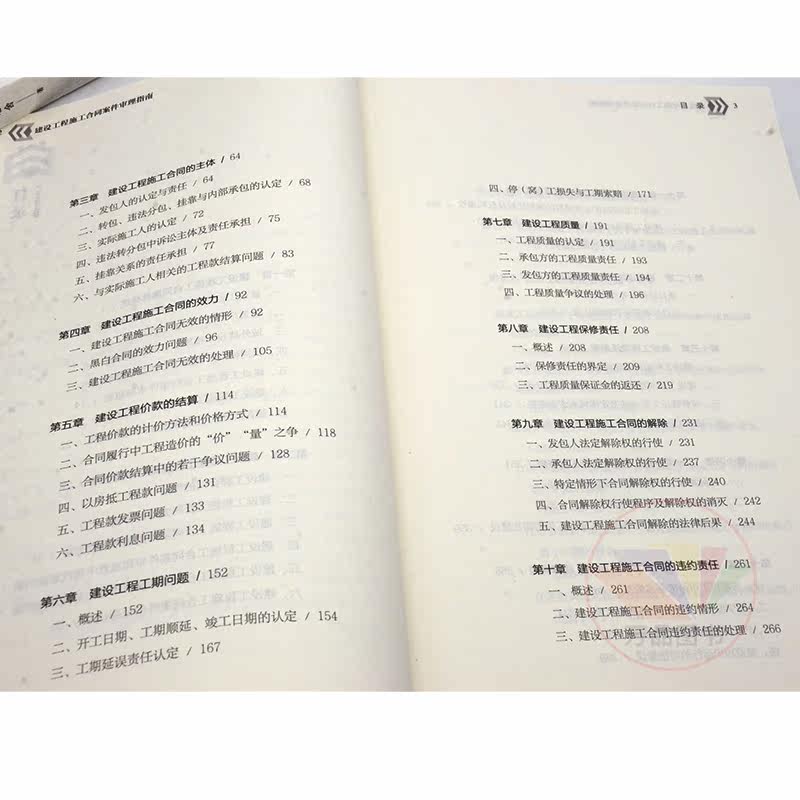 建设工程施工合同案件审理指南
第三章 建设工程施工合同的主体 / 64
一、发包人的认定与责任 / 64
二、转包、违法分包、挂靠与内部承包的认定 / 68
三、实际施工人的认定 / 72
四、违法转分包中诉讼主体及责任承担 / 75
五、挂靠关系的责任承担 / 77
六、与实际施工人相关的工程款结算问题 / 83
第四章 建设工程施工合同的效力 / 92
一、建设工程施工合同无效的情形 / 92
二、黑白合同的效力问题 / 96
三、建设工程施工合同无效的处理 / 105
第五章 建设工程价款的结算 / 114
一、工程价款的计价方法和价格方式 / 114
二、合同履行中工程造价的“价”“量”之争 / 118
三、合同价款结算中的若干争议问题 / 128
四、以房抵工程款问题 / 131
五、工程款发票问题 / 133
六、工程款利息问题 / 134
第六章 建设工程工期问题 / 152
一、概述 / 152
二、开工日期、工期顺延、竣工日期的认定 / 154
三、工期延误责任认定 / 167
目录 3
四、停（窝）工损失与工期索赔 / 171
第七章 建设工程质量 / 191
一、工程质量的认定 / 191
二、承包方的工程质量责任 / 193
三、发包方的工程质量责任 / 194
四、工程质量争议的处理 / 196
第八章 建设工程保修责任 / 208
一、概述 / 208
二、保修责任的界定 / 209
三、工程质量保证金的返还 / 219
第九章 建设工程施工合同的解除 / 231
一、发包人法定解除权的行使 / 231
二、承包人法定解除权的行使 / 237
三、特定情形下合同解除权的行使 / 240
四、合同解除权行使程序及解除权的消灭 / 242
五、建设工程施工合同解除的法律后果 / 244
第十章 建设工程施工合同的违约责任 / 261
一、概述 / 261
二、建设工程施工合同的违约情形 / 264
三、建设工程施工合同违约责任的处理 / 266